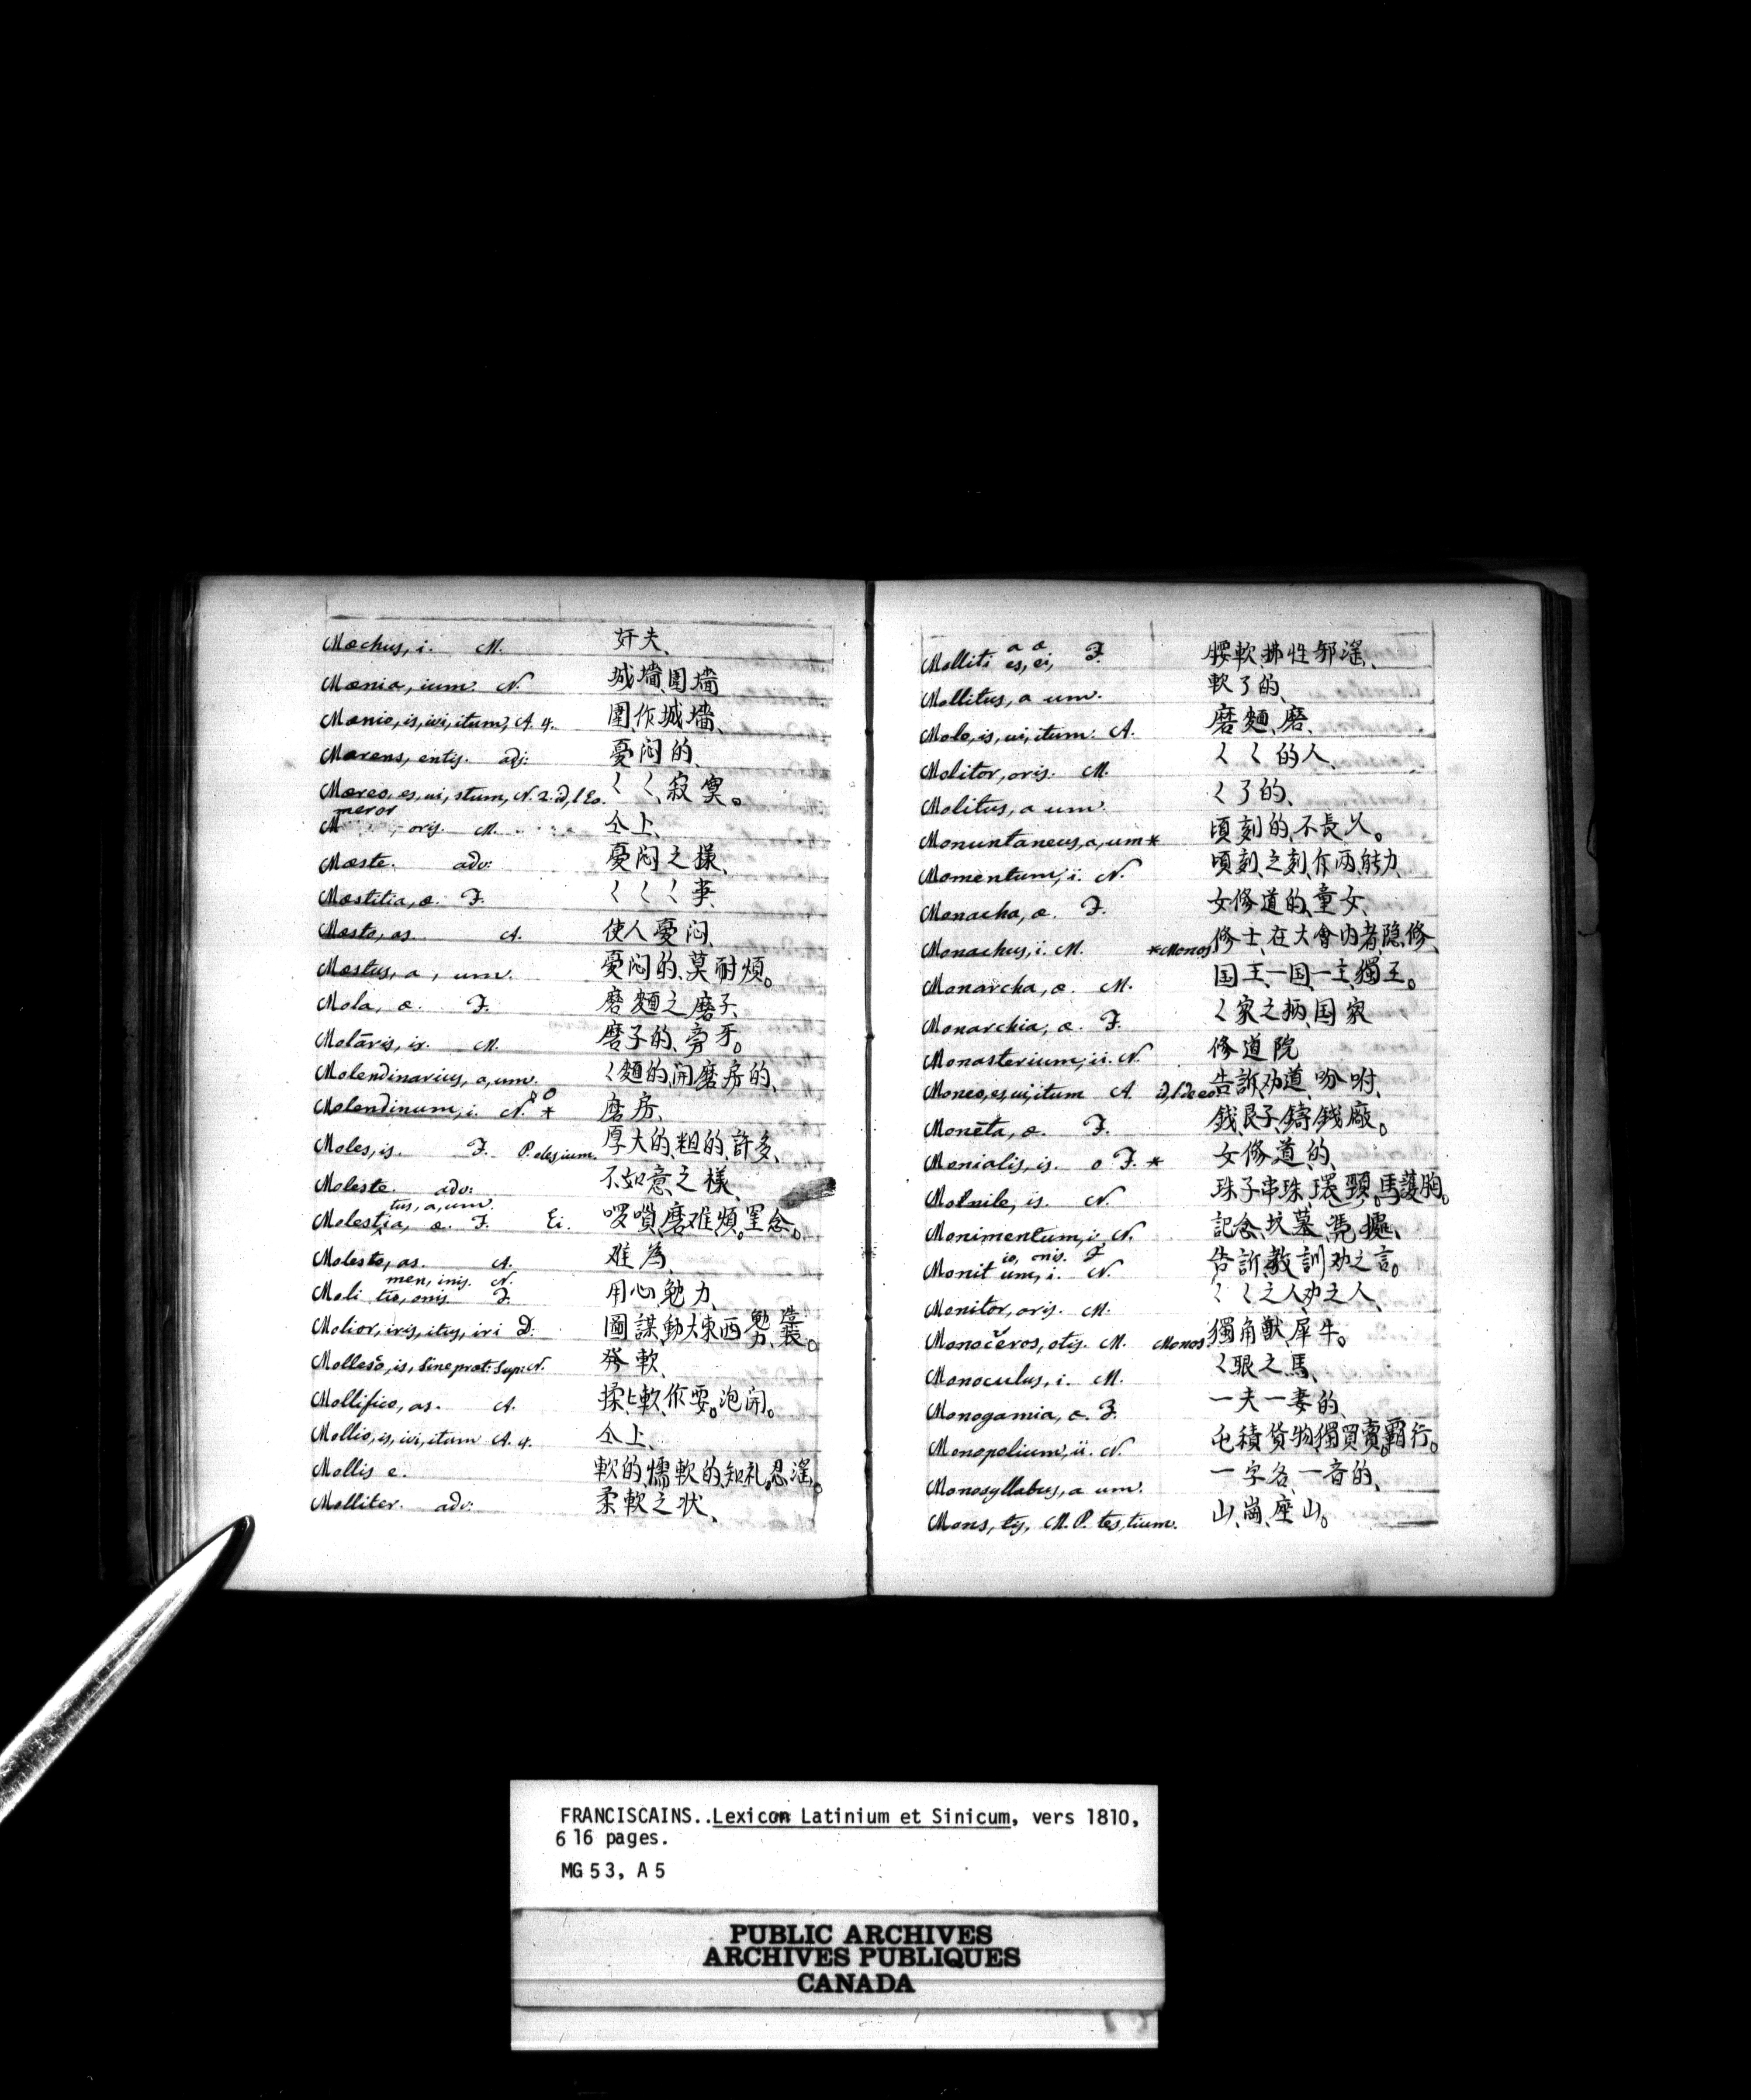 Mœchus, i. M. 奸夫、
Mœnia, ium. N. 城墻、圍墻
Mœnio, is, ivi, itum, A. 4. 圍作城墻、
Mœrens, entis. adj: 憂悶的、
Mœreo, es, ui, stum, N. 2. d, l Eo. く く、寂寞。
meror
M , oris. M. 仝上、
Mœste. adv: 憂悶之樣、
Mœstitia, æ. F. く く く 事、
Mœsto, as. A. 使人憂悶、
Mœstus, a, um. 憂悶的、莫耐煩。
Mola, æ. F. 磨麵之磨子、
Molāris, is. M. 磨子的、旁牙。
Molendinarius, a, um. く麵的、開磨房的、
Molendinum, i. N. * 磨房、
Moles, is. F. P. oles, ium. 厚大的、粗的、許多、
Moleste. adv: 不如意之樣、
tus, a, um.
Molestia, æ. F. Ei. 啰嗩、磨难、煩。罣念。
Molesto, as. A. 难為、
men, inis. N.
Moli tio, onis. F. 用心、勉力、
Molior, iris, itus, iri D: 圖謀、動大東西、勉力、造裝。
Mollesco, is, sine præt: sup: N. 發軟、
Mollifico, as. A. 揉上軟、作耍。泡開。
Mollio, is, ivi, itum A. 4. 仝上、
Mollis e. 軟的、懦軟的、知礼。忍滛。
Molliter. adv: 柔軟之状、
a æ
Molliti es, ei, F. 腰軟、拂性、邪滛、
Mollitus, a um. 軟了的、
Molo, is, ui, itum. A. 磨麵、磨、
Molitor, oris. M. く く 的人、
Molitus, a um. く了的、
Momentaneus, a, um * 頃刻的、不長久。
Momentum, i. N. 頃刻之刻、斤两、能力、
Monacha, æ. F. 女修道的、童女、
Monachus, i. M. * Monos 修士、在大會内者、隐修、
Monarcha, æ. M. 国王、一国一主、獨王。
Monarchia, æ. F. く家之柄、国家
Monasterium, ii. N. 修道院
Moneo, es, ui, itum A. d, l de eo 告訴、劝道、吩咐、
Monēta, æ. F. 錢、艮子、鑄錢廠。
Monialis, is. o F. * 女修道的、
Monile, is. N. 珠子、串珠、環頸、馬護胸。
Monimentum, i. N. 記念、坟墓、凴據、
io, onis. F
Monit um, i. N. 告訴、教訓、劝之言。
Monitor, oris. M. く く之人、劝之人、
Monočeros, otis. M. Monos 獨角獸、犀牛。
Monoculus, i. M. く眼之馬、
Monogamia, æ. F. 一夫一妻的、
Monopolium, ii. N. 屯積貨物、獨買賣。覇行。
Monosyllabus, a um. 一字各一音的、
Mons, tis, M. P. tes, tium. 山、崗、座山。
FRANCISCAINS..Lexicon Latinium et Sinicum, vers 1810,
616 pages.
MG 53, A 5
PUBLIC ARCHIVES
ARCHIVES PUBLIQUES
CANADA